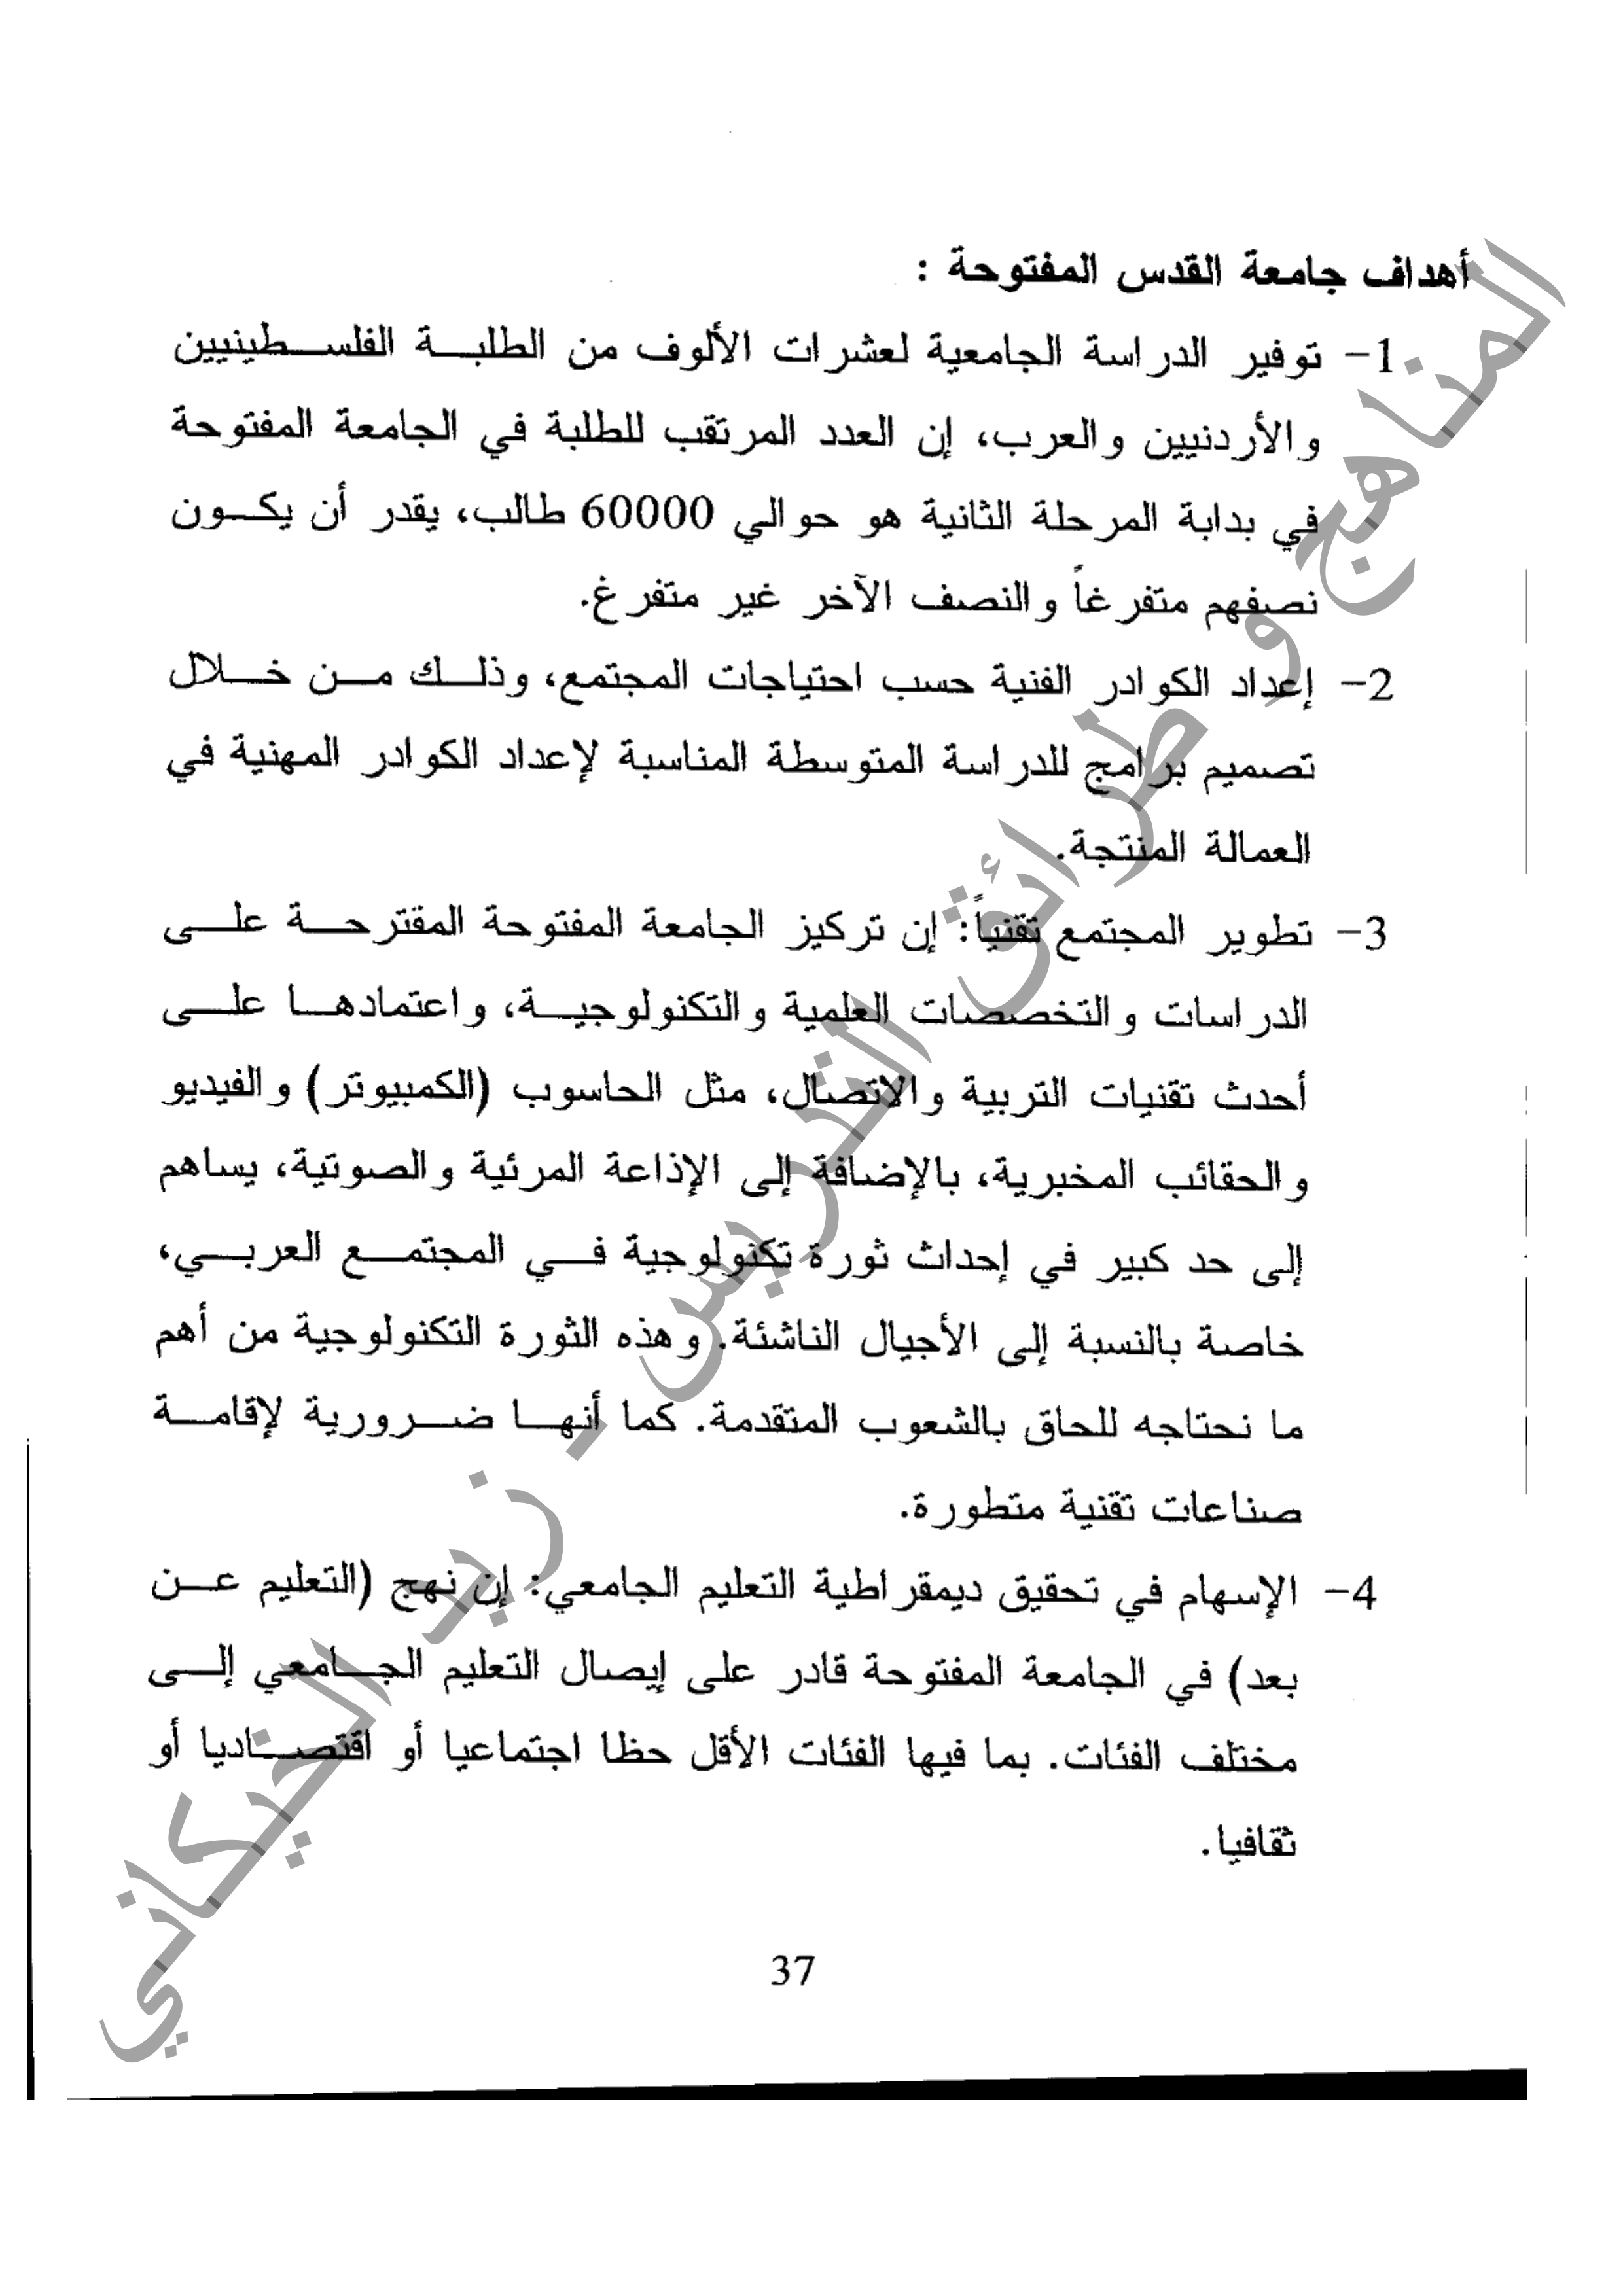 أهداف جامعة القدس المفتوحة :
1- توفير الدراسة الجامعية لعشرات الألوف من الطلبة الفلسطينيين
والأردنيين والعرب، إن العدد المرتقب للطلبة في الجامعة المفتوحة
في بداية المرحلة الثانية هو حوالي 60000 طالب، يقدر أن يكون
نصفهم متفرغاً والنصف الآخر غير متفرغ.
2- إعداد الكوادر الفنية حسب احتياجات المجتمع، وذلك من خلال
تصميم برامج للدراسة المتوسطة المناسبة لإعداد الكوادر المهنية في
العمالة المنتجة.
3- تطوير المجتمع تقنياً: إن تركيز الجامعة المفتوحة المقترحة على
الدراسات والتخصصات العلمية والتكنولوجية، واعتمادها على
أحدث تقنيات التربية والاتصال، مثل الحاسوب (الكمبيوتر) والفيديو
والحقائب المخبرية، بالإضافة إلى الإذاعة المرئية والصوتية، يساهم
إلى حد كبير في إحداث ثورة تكنولوجية في المجتمع العربي،
خاصة بالنسبة إلى الأجيال الناشئة. وهذه الثورة التكنولوجية من أهم
ما نحتاجه للحاق بالشعوب المتقدمة. كما أنها ضرورية لإقامة
صناعات تقنية متطورة.
4- الإسهام في تحقيق ديمقراطية التعليم الجامعي: إن نهج (التعليم عن
بعد) في الجامعة المفتوحة قادر على إيصال التعليم الجامعي إلى
مختلف الفئات. بما فيها الفئات الأقل حظا اجتماعيا أو اقتصاديا أو
ثقافيا.
37
المناهج و طرائق التدريس - زيد الخيكاني